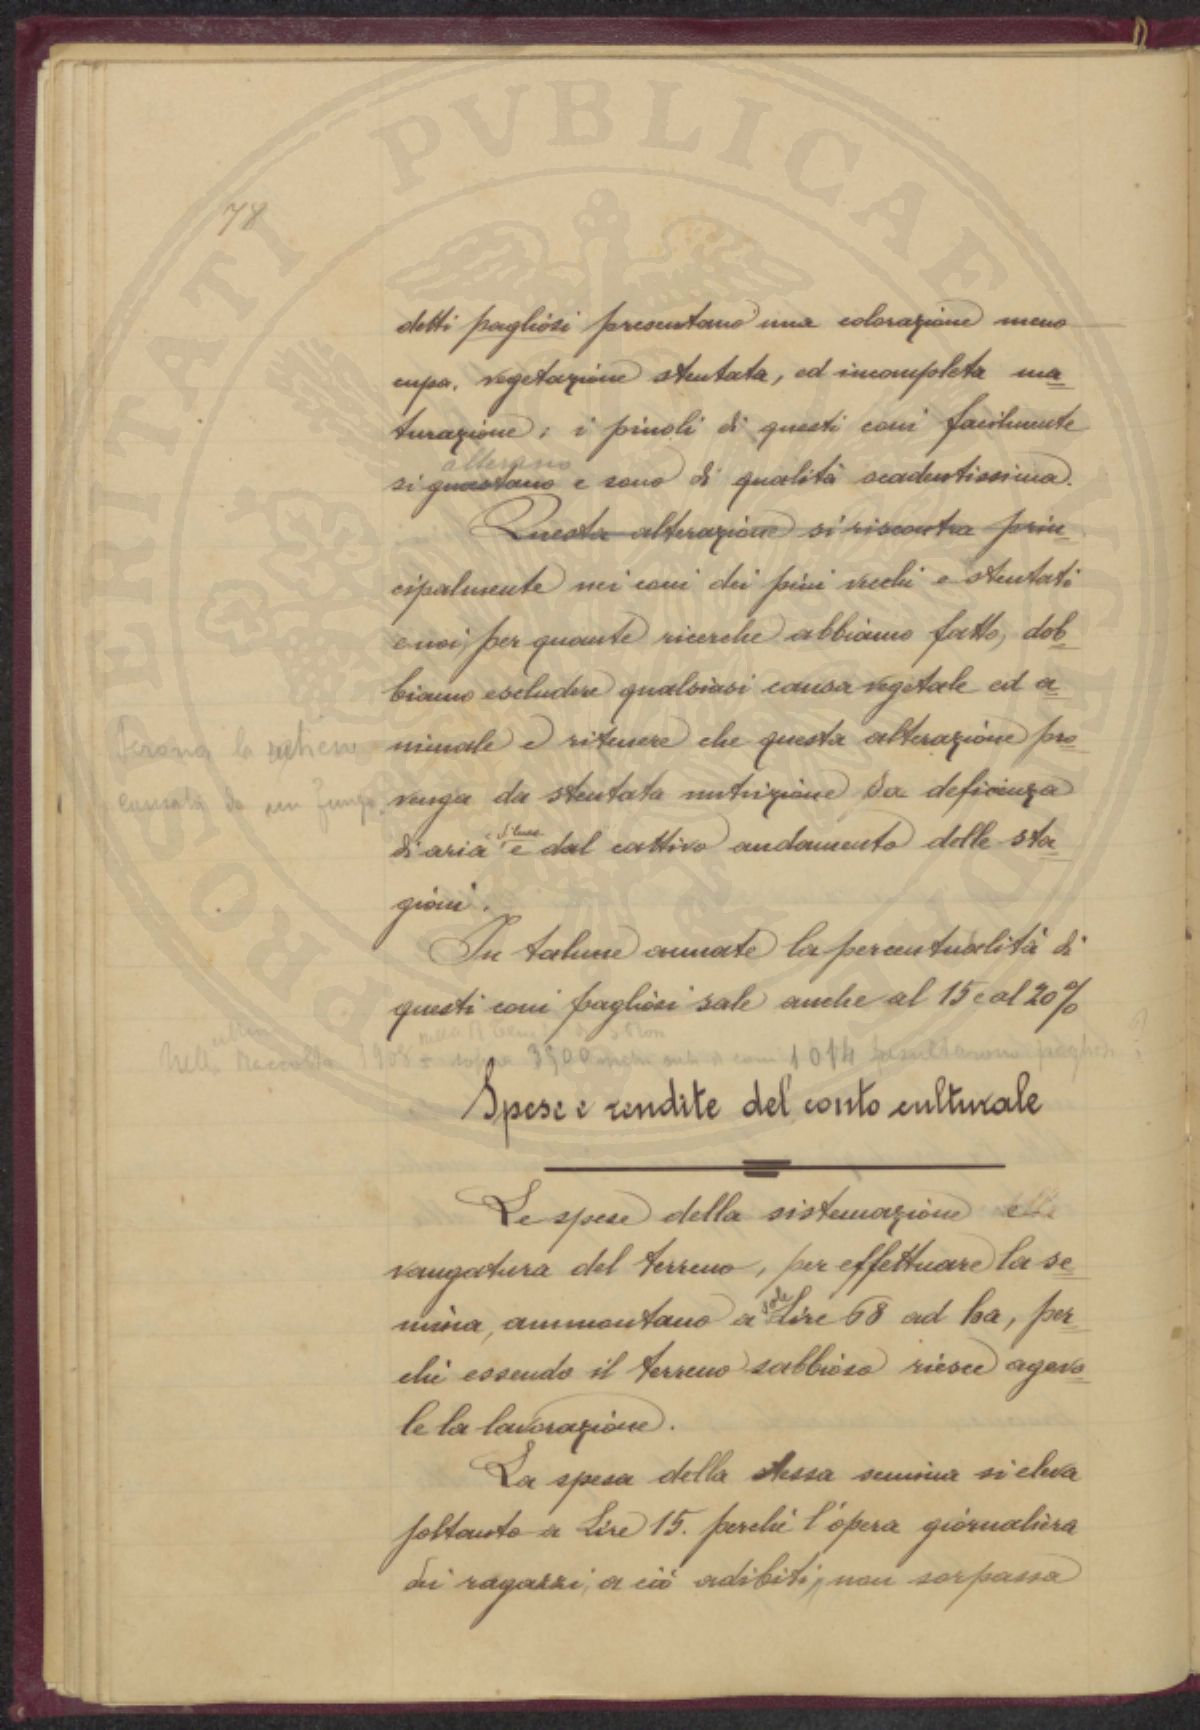 78
detti pagliosi presentano una colorazione meno
cupa. vegetazione stentata, ed incompleta ma
turazione; i pinoli di questi coni facilmente
alterano
si guastano e sono di qualità scadentissima.
Questa alterazione si riscontra prin
cipalmente nei coni dei pini vecchi e stentati
e noi, per quante ricerche abbiamo fatto, dob
biamo escludere qualsiasi causa vegetale ed a
nimale e ritenere che questa alterazione pro
venga da stentata nutrizione da deficienza
e di luce
di aria e dal cattivo andamento delle sta
gioni.
la ritiene
causata da un fungo
In talune annate la percentualità di
questi coni pagliosi sale anche al 15 e al 20%
Nella raccolta 1908 sopra 3500 coni 1014 risultarono pagliosi
Spese e rendite del conto culturale
Le spese della sistemazione e
vangatura del terreno, per effettuare la se
sole
mina, ammontano a Lire 68 ad ha, per
chè essendo il terreno sabbioso riesce agevo
le la lavorazione.
La spesa della stessa semina si eleva
soltanto a Lire 15. perchè l'opera giornaliera
dei ragazzi, a ciò adibiti, non sorpassa
PROPRIETATI PVBLICAE